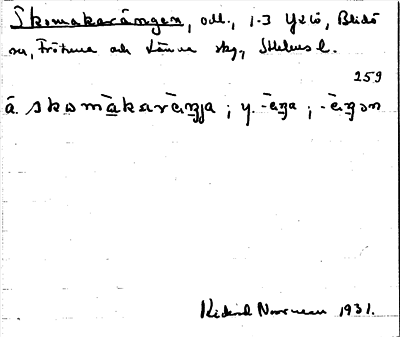 Skomakarängen, odl., 1-3 Yxlö, Blidö
sn, Frötuna och Länna skg., Sthlms l.
259
å. skomàkarēŋja ; y. -ēŋa ; -ēŋən
Rickard Norrman 1931.